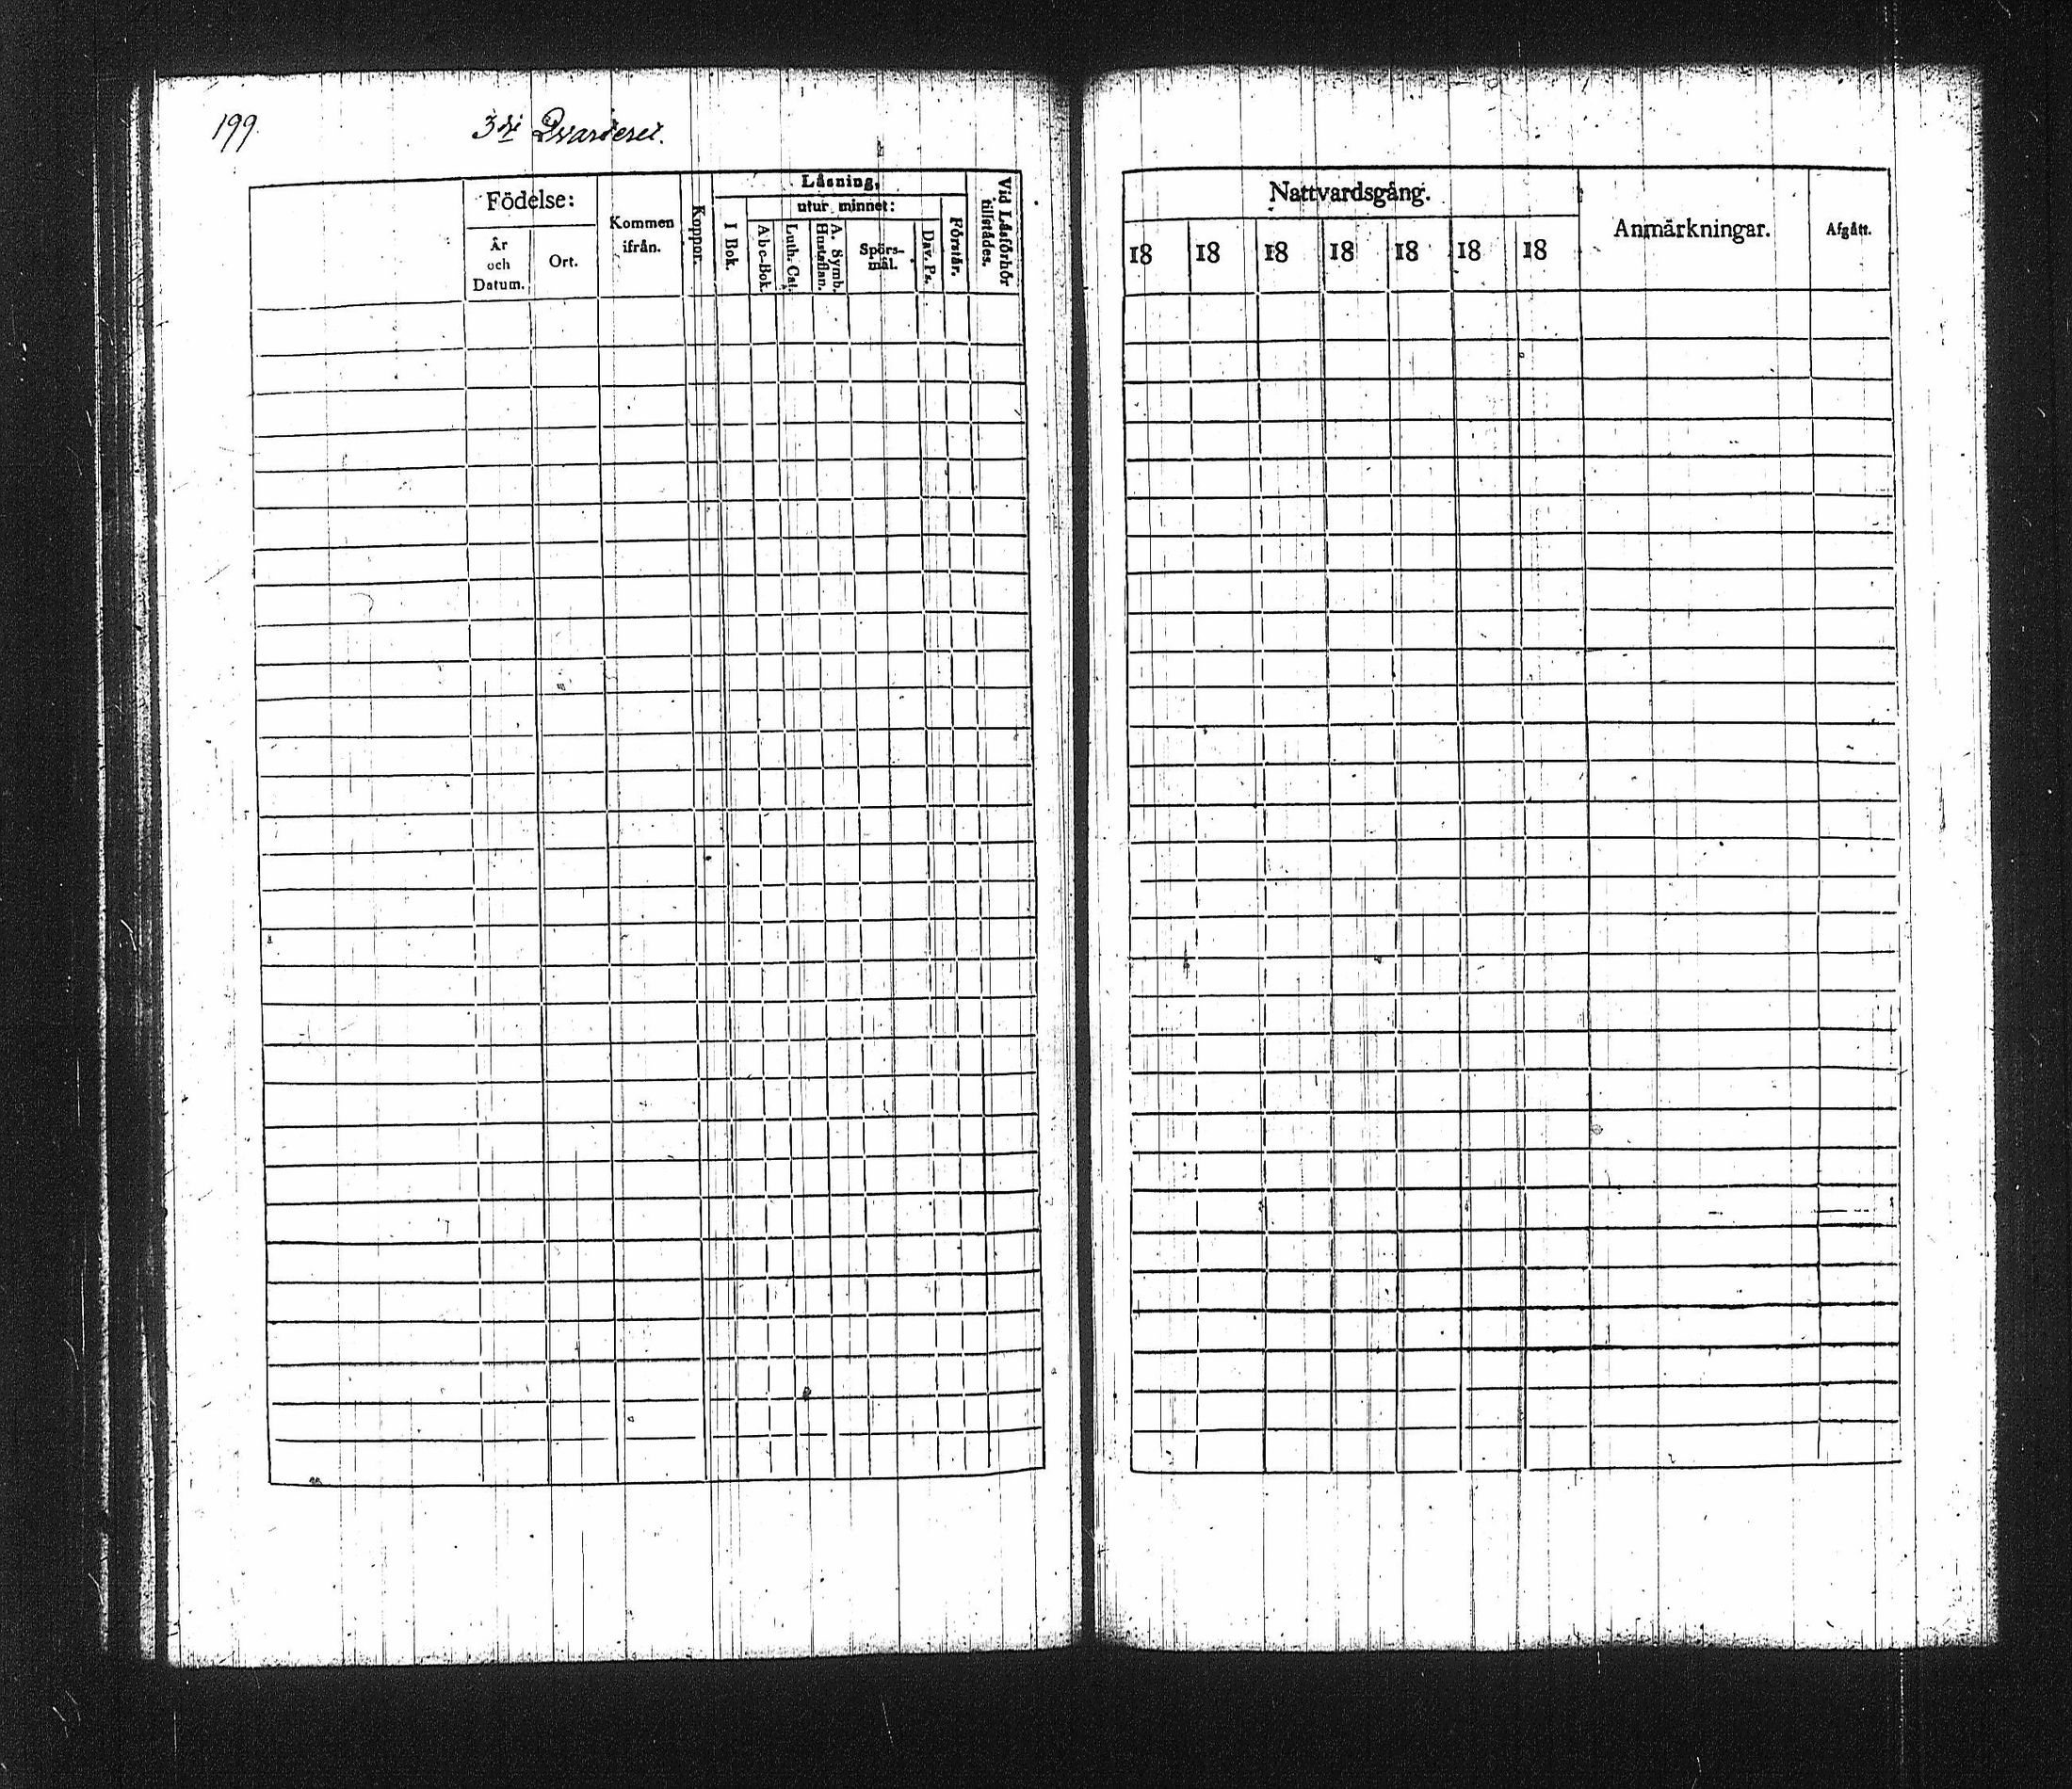 199.
3die Qvarteret.
Födelse:
År och Datum.
Ort.
Kommen ifrån.
Koppor.
Läsning,
I Bok.
utur minnet:
Abc-Bok.
Luth. Cat.
Hustaflan.
A. Symb.
Spörs-mål.
Dav. Ps.
Förstår.
Vid Läsförhör tillstädes.
Nattvardsgång.
18 18 18 18 18 18 18
Anmärkningar.
Afgått.